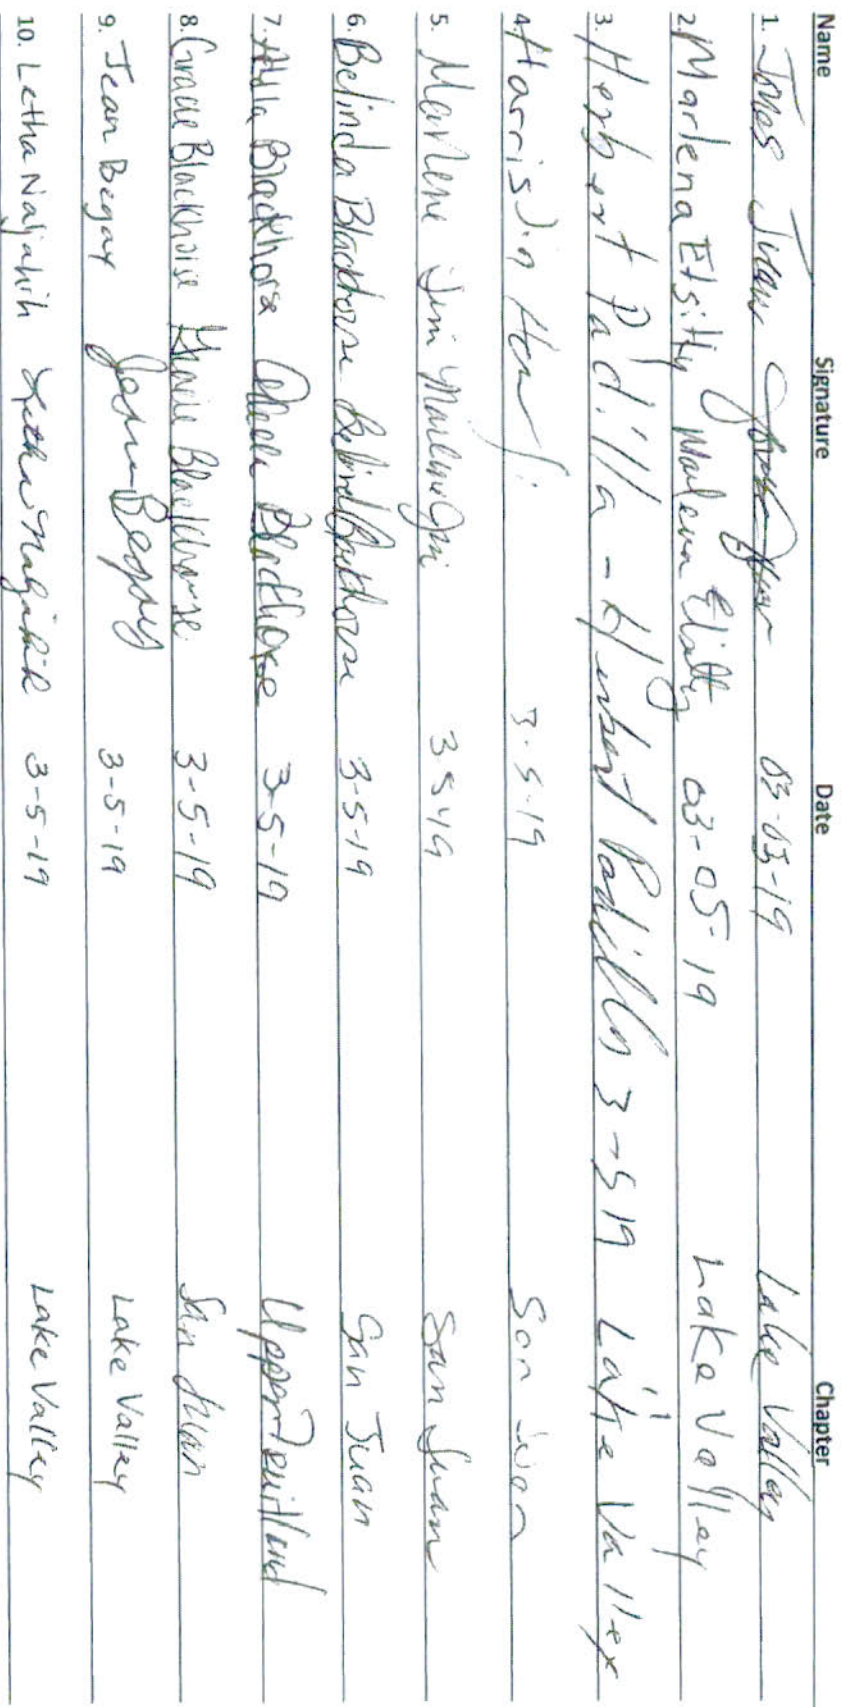 Name Signature Date Chapter
1. Jones Juan 03-03-19 Lake Valley
2. Marlena Etsitty Marlena Etsitty 03-05-19 Lake Valley
3. Herbert Padilla - Herbert Padilla 3-5 19 Lake Valley
4. Harris Jim 3-5-19 San Juan
5. Marlene Jim Marlene Jim 3-5-19 San Juan
6. Belinda Blackhorse Belinda Blackhorse 3-5-19 San Juan
7. Blackhorse Blackhorse 3-5-19 Upper Fruitland
8. Gracie Blackhorse Gracie Blackhorse 3-5-19 San Juan
9. Jean Begay Jean Begay 3-5-19 Lake Valley
10. Letha Letha 3-5-19 Lake Valley